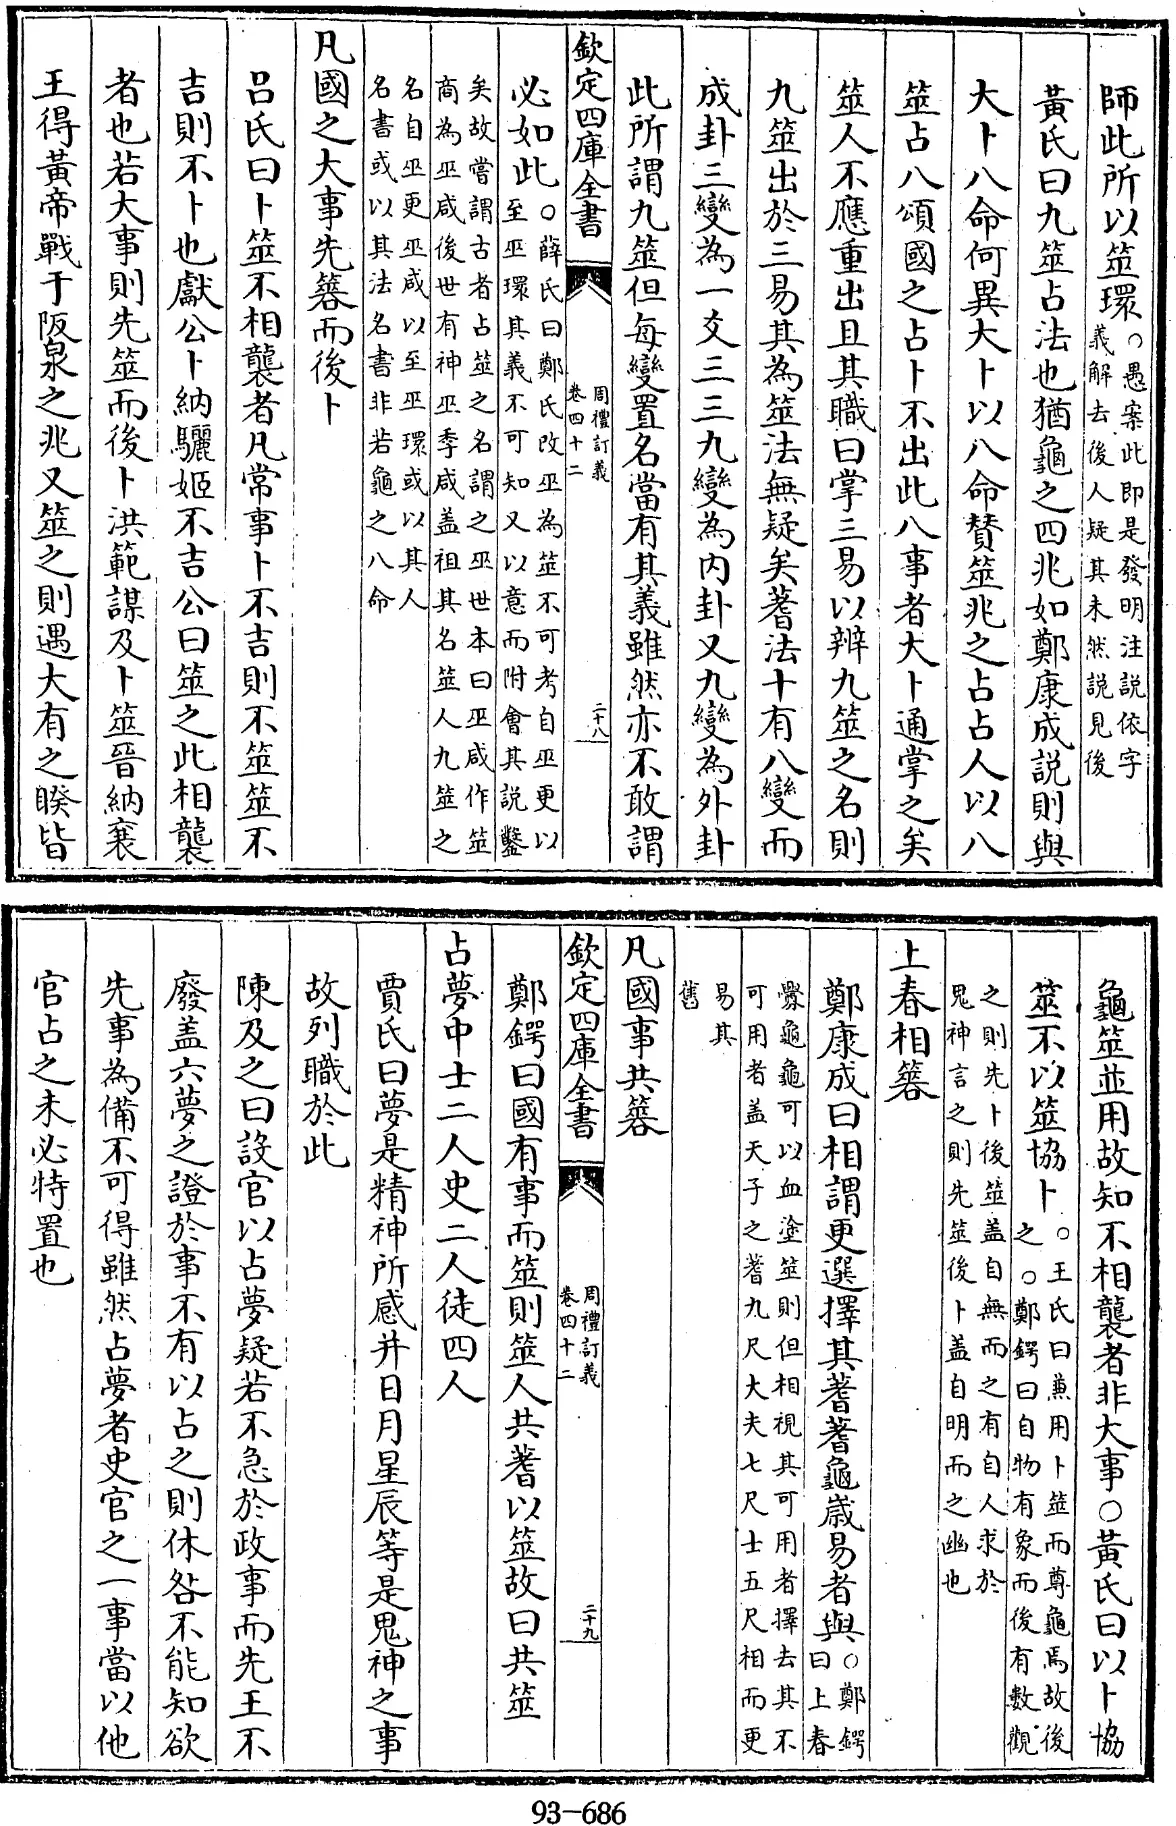 師此所以筮環○愚案此即是發明注説依字
義解去後人疑其未然説見後
黃氏曰九筮占法也猶龜之四兆如鄭康成説則與
大卜八命何異大卜以八命贊筮兆之占占人以八
筮占八頌國之占卜不出此八事者大卜通掌之矣
筮人不應重出且其職曰掌三易以辨九筮之名則
九筮出於三易其為筮法無疑矣蓍法十有八變而
成卦三變為一爻三三九變為内卦又九變為外卦
此所謂九筮但每變置名當有其義雖然亦不敢謂
欽定四庫全書
周禮訂義
卷四十二
二十八
必如此○薛氏曰鄭氏改巫為筮不可考自巫更以
至巫環其義不可知又以意而附會其説鑿
矣故嘗謂古者占筮之名謂之巫世本曰巫咸作筮
商為巫咸後世有神巫季咸盖祖其名筮人九筮之
名自巫更巫咸以至巫環或以其人
名書或以其法名書非若龜之八命
凡國之大事先簭而後卜
呂氏曰卜筮不相襲者凡常事卜不吉則不筮筮不
吉則不卜也獻公卜納驪姬不吉公曰筮之此相襲
者也若大事則先筮而後卜洪範謀及卜筮晉納襄
王得黃帝戰于阪泉之兆又筮之則遇大有之睽皆
龜筮並用故知不相襲者非大事○黃氏曰以卜協
筮不以筮協卜○王氏曰蕙用卜筮而尊龜焉故後
之○鄭鍔曰自物有象而後有數觀
之則先卜後筮盖自無而之有自人求於
鬼神言之則先筮後卜盖自明而之幽也
上春相簭
鄭康成曰相謂更選擇其蓍蓍龜歲易者與○鄭鍔
曰上春
釁龜龜可以血塗筮則但相視其可用者擇去其不
可用者盖天子之蓍九尺大夫七尺士五尺相而更
易其
舊
凡國事共簭
欽定四庫全書
周禮訂義
卷四十二
二十九
鄭鍔曰國有事而筮則筮人共蓍以筮故曰共筮
占夢中士二人史二人徒四人
賈氏曰夢是精神所感并日月星辰等是鬼神之事
故列職於此
陳及之曰設官以占夢疑若不急於政事而先王不
廢盖六夢之證於事不有以占之則休咎不能知欲
先事為備不可得雖然占夢者史官之一事當以他
官占之未必特置也
93-686